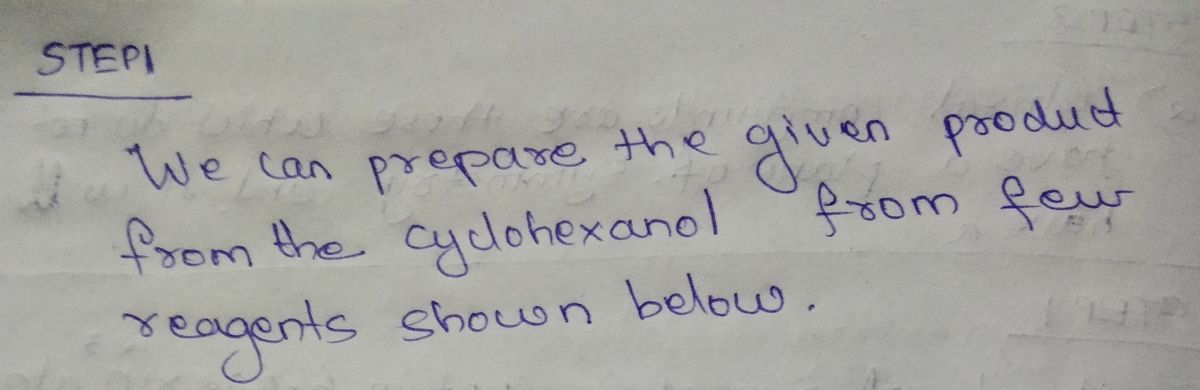 STEP1
We can prepare the given product
from the cyclohexanol from few
reagents shown below.